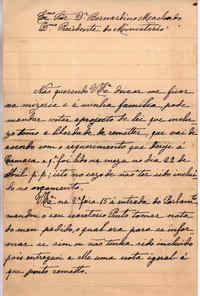 Exmo Snr Dr Bernardino Machado
Dmo Presidente do Ministerio
Não querendo V. Exa deixar-me ficar
na miseria e á minha familia, pode
mandar votar o projecto de lei que
tomo a liberdade de remetter, que vai de
acordo com o requerimento que dirigi á
Camara e q. foi lido na mesa no dia 22 de
Abril p. p.; isto no caso de não ter sido incluido
no orçamento.
V. Exa na 2ª feira 15 á entrada do Parlamento
mandou o seu secretario tomar nota
do meu pedido, o qual era para se infor-
mar se sim ou não tinha sido incluido
pois entreguei a elle uma nota igual á
que junto remetto.